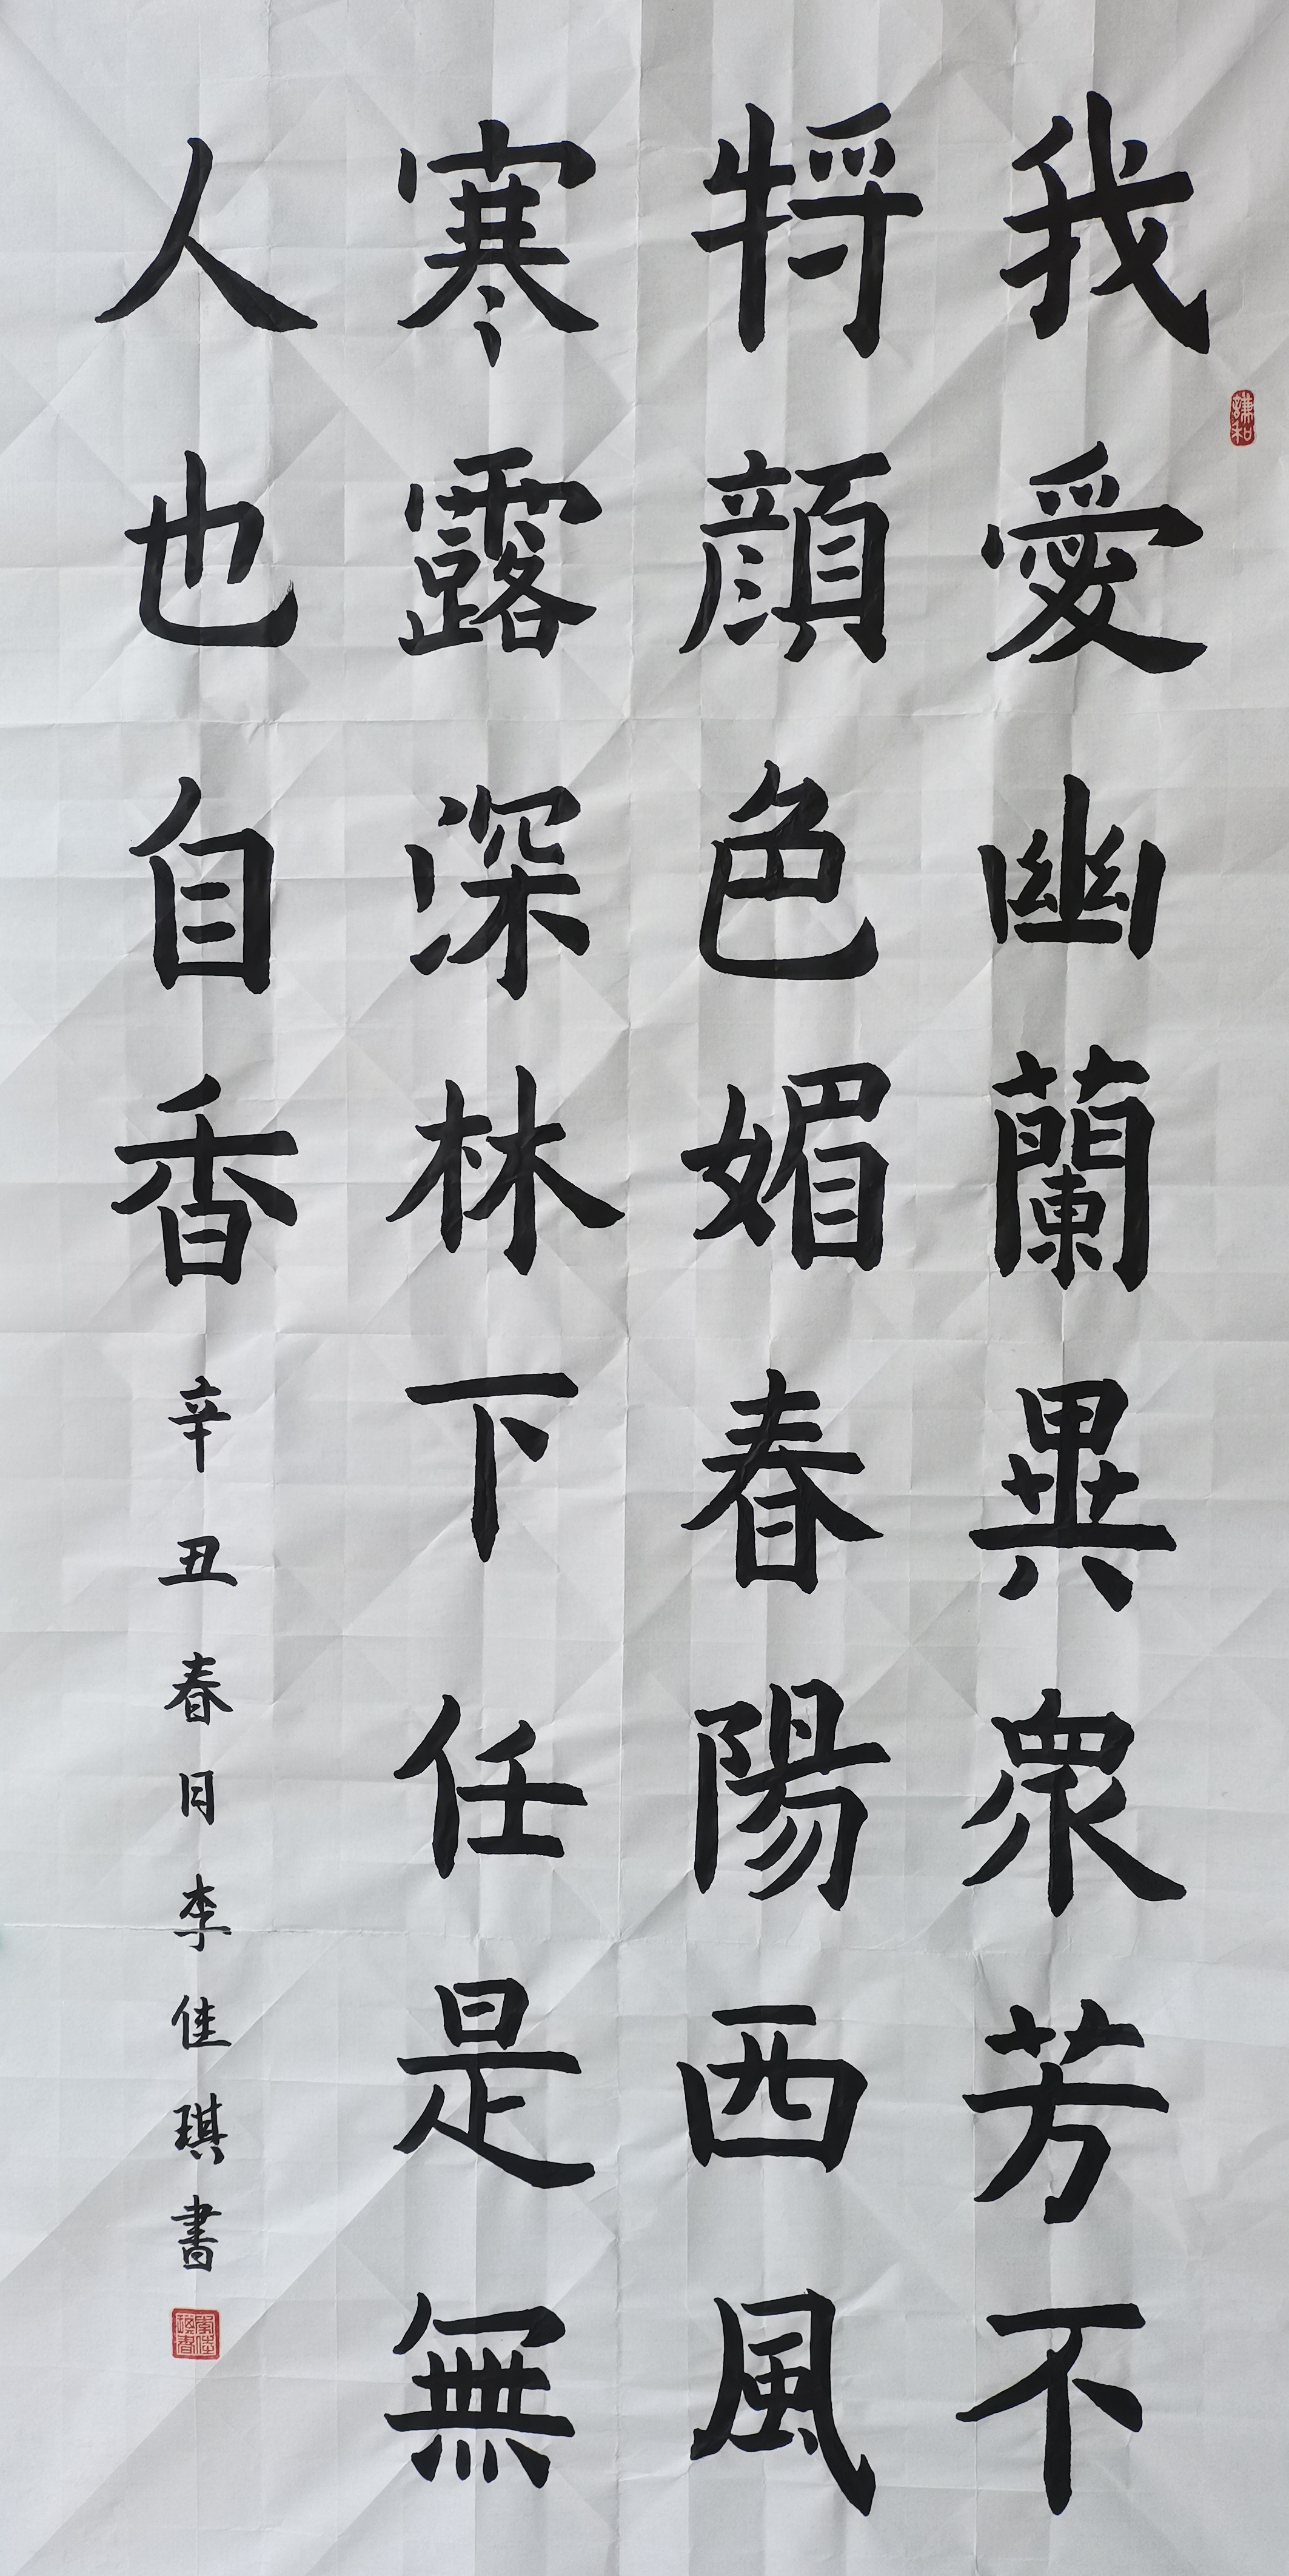 我愛幽蘭異衆芳不
將顔色媚春陽西風
寒露深林下任是無
人也自香
辛丑春日李佳琪書
謙和